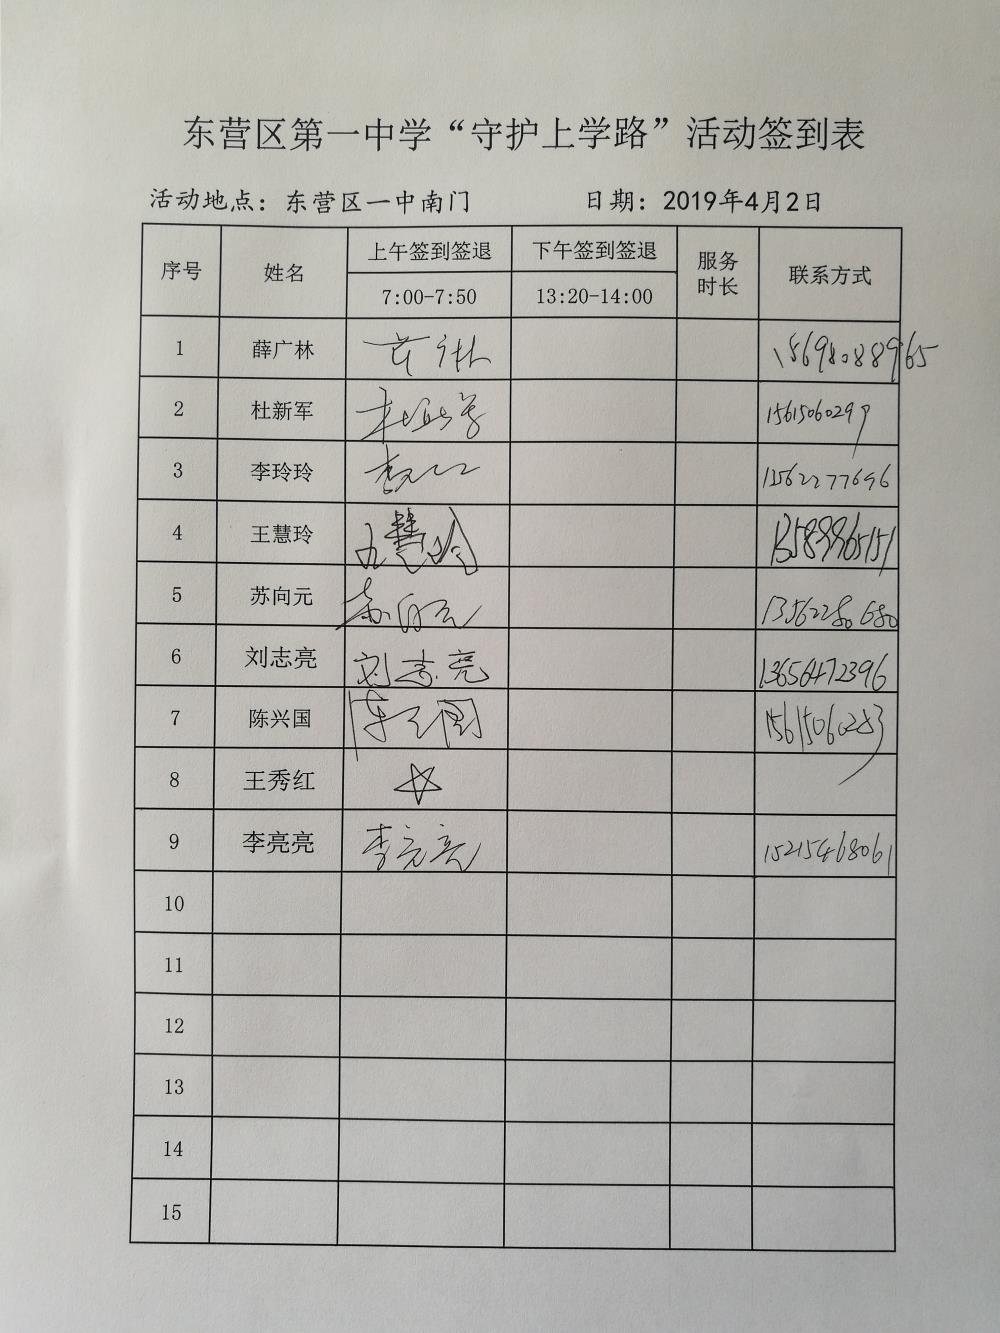 东营区第一中学“守护上学路”活动签到表
活动地点：东营区一中南门 日期：2019年4月2日
序号 姓名 上午签到签退 下午签到签退 服务时长 联系方式
7:00-7:50 13:20-14:00
1 薛广林 15698088965
2 杜新军 杜新军 15615060297
3 李玲玲 12562277696
4 王慧玲 王慧玲 13589965151
5 苏向元 苏向元 13562280680
6 刘志亮 刘志亮 13656472396
7 陈兴国 陈兴国 15615060283
8 王秀红
9 李亮亮 李亮亮 15215468061
10
11
12
13
14
15